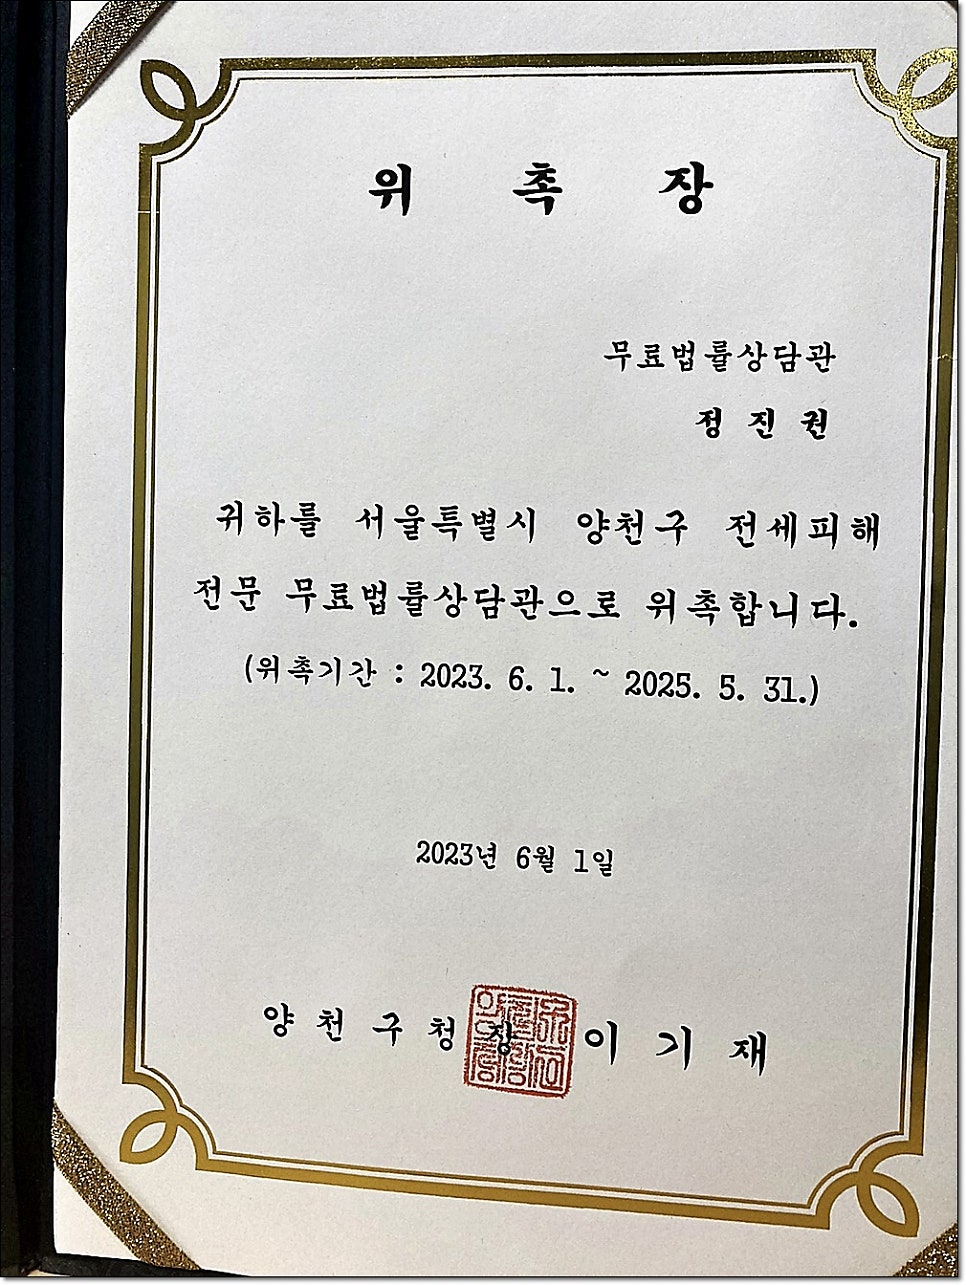 위 촉 장
무료법률상담관
정 진 권
귀하를 서울특별시 양천구 전세피해
전문 무료법률상담관으로 위촉합니다.
(위촉기간 : 2023. 6. 1. ~ 2025. 5. 31.)
2023년 6월 1일
양 천 구 청 장 이 기 재